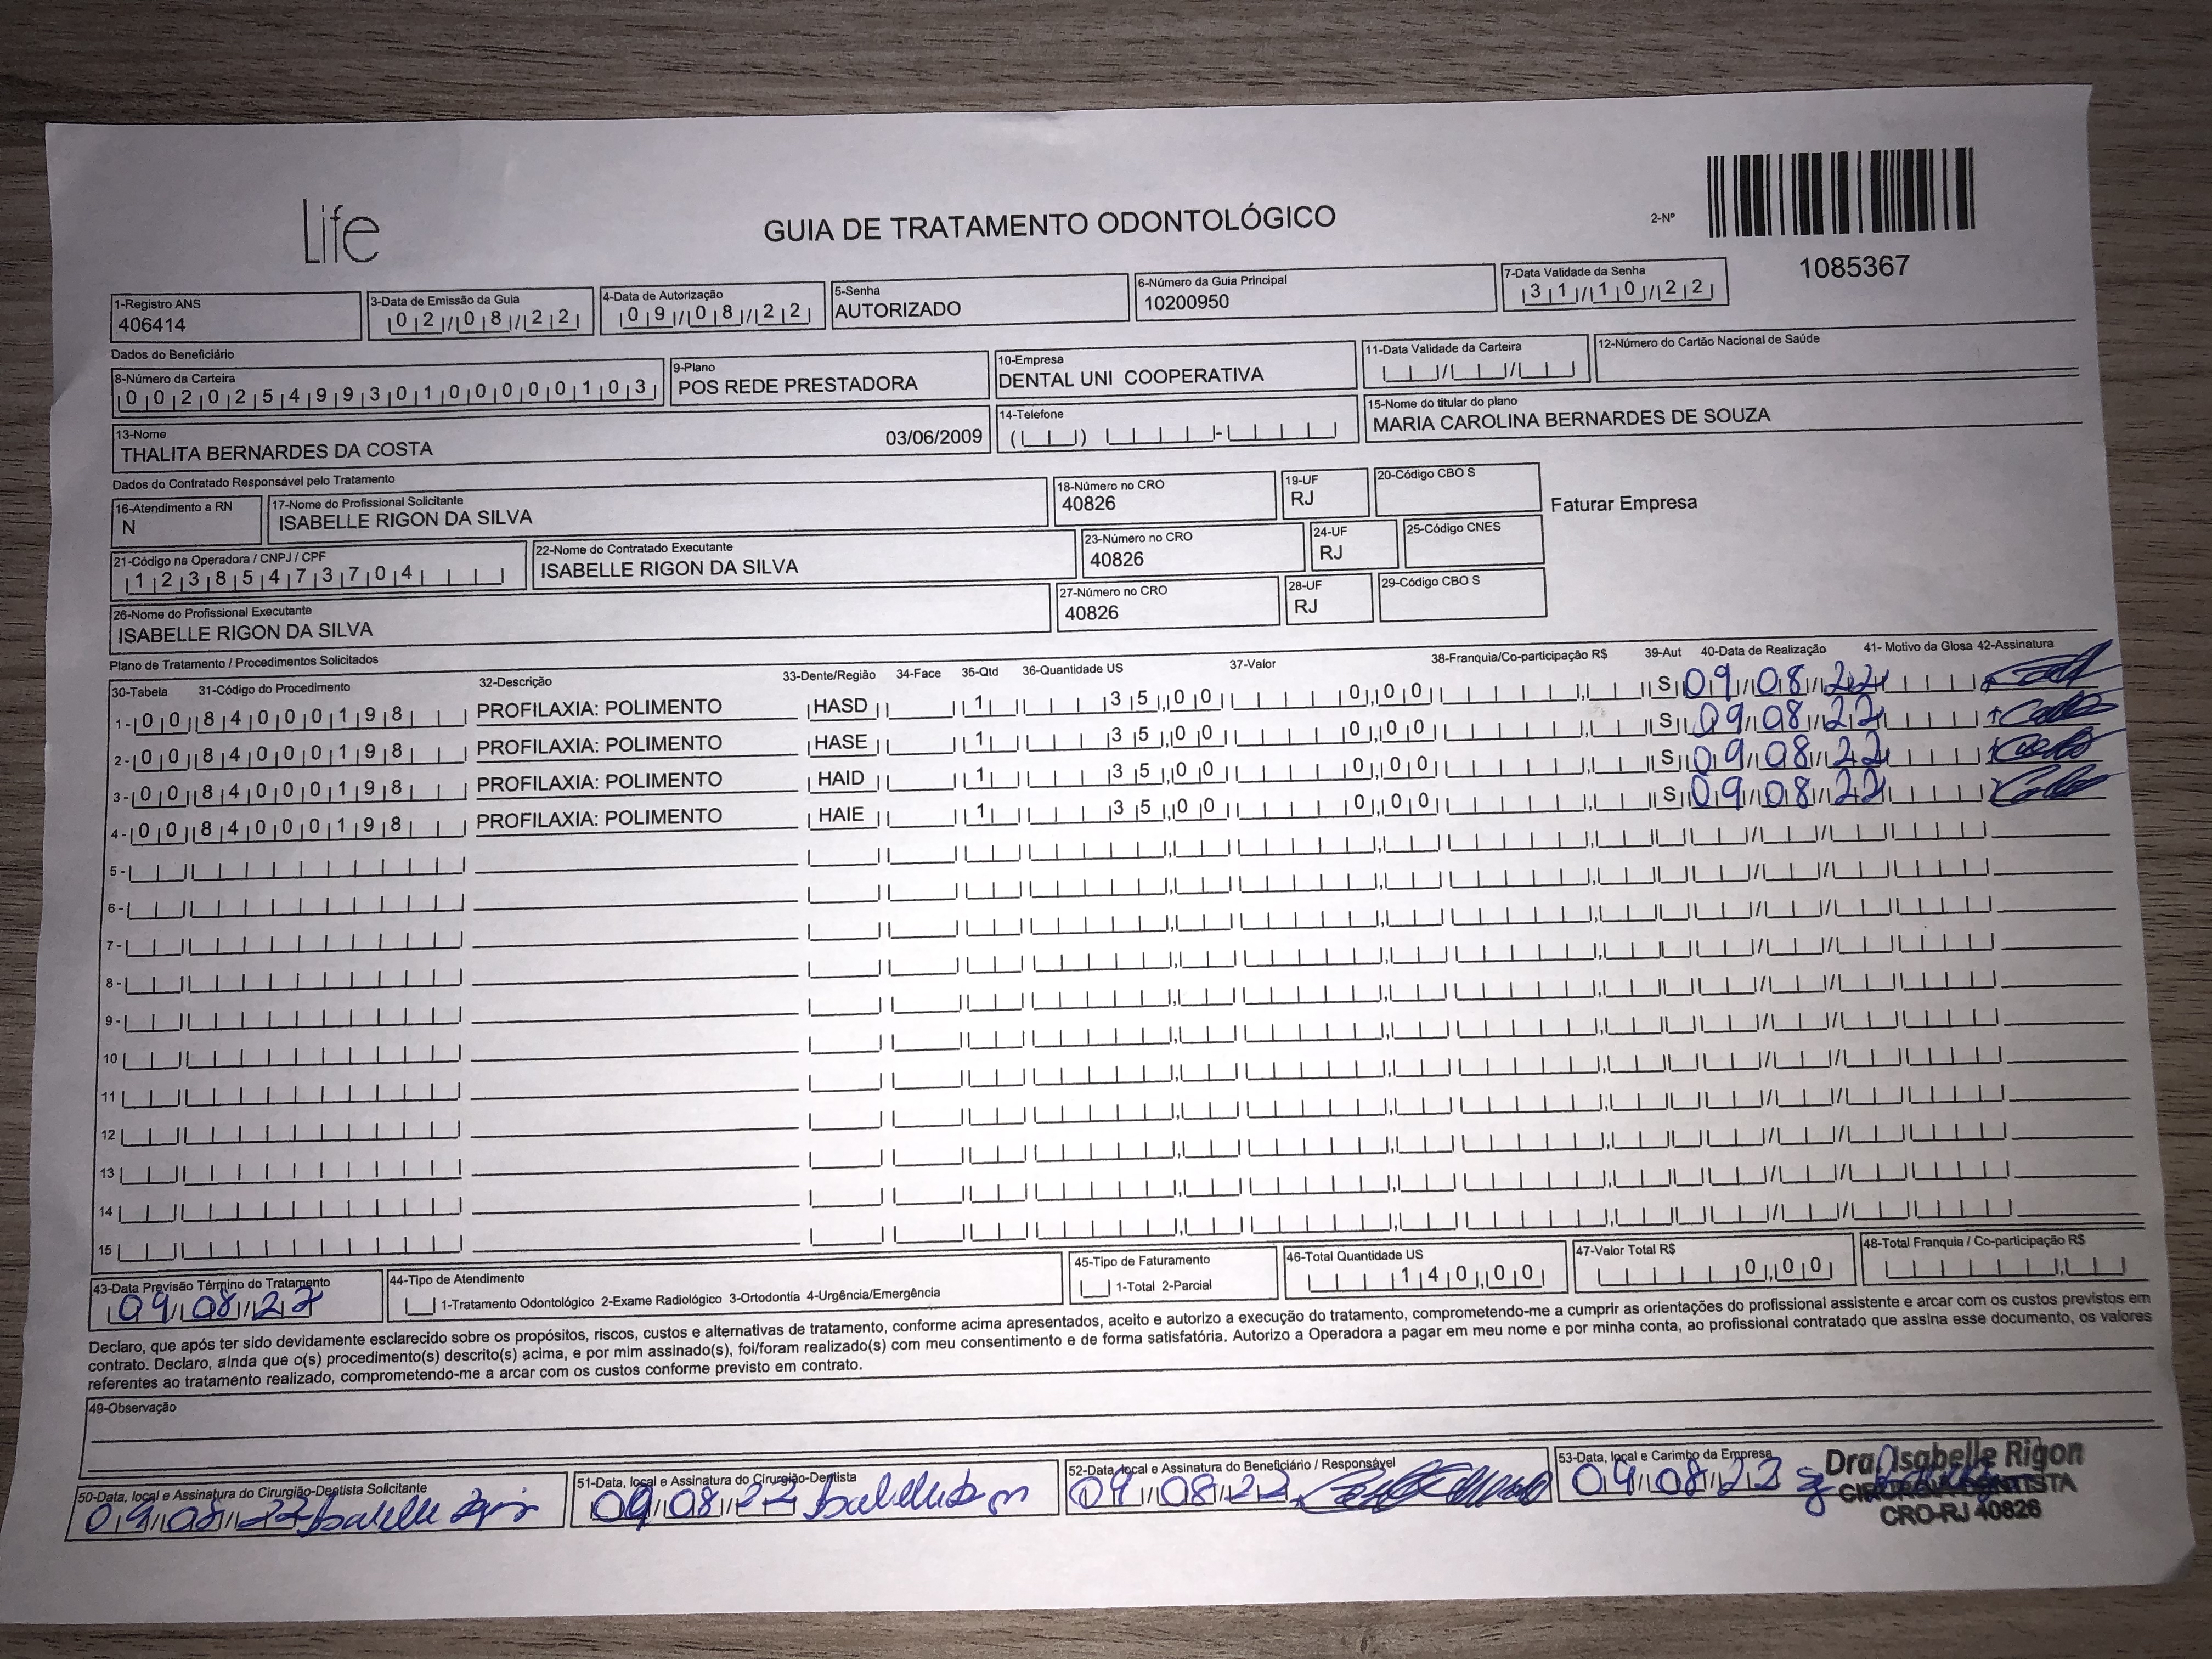 Life
GUIA DE TRATAMENTO ODONTOLÓGICO
2-Nº
1085367
1-Registro ANS
406414
3-Data de Emissão da Guia
02/08/22
4-Data de Autorização
09/08/22
5-Senha
AUTORIZADO
6-Número da Guia Principal
10200950
7-Data Validade da Senha
31/10/22
Dados do Beneficiário
8-Número da Carteira
00202549930100000103
9-Plano
POS REDE PRESTADORA
10-Empresa
DENTAL UNI COOPERATIVA
11-Data Validade da Carteira
12-Número do Cartão Nacional de Saúde
13-Nome
THALITA BERNARDES DA COSTA 03/06/2009
14-Telefone
15-Nome do titular do plano
MARIA CAROLINA BERNARDES DE SOUZA
Dados do Contratado Responsável pelo Tratamento
16-Atendimento a RN
N
17-Nome do Profissional Solicitante
ISABELLE RIGON DA SILVA
18-Número no CRO
40826
19-UF
RJ
20-Código CBO S
Faturar Empresa
21-Código na Operadora / CNPJ / CPF
12385473704
22-Nome do Contratado Executante
ISABELLE RIGON DA SILVA
23-Número no CRO
40826
24-UF
RJ
25-Código CNES
26-Nome do Profissional Executante
ISABELLE RIGON DA SILVA
27-Número no CRO
40826
28-UF
RJ
29-Código CBO S
Plano de Tratamento / Procedimentos Solicitados
30-Tabela 31-Código do Procedimento 32-Descrição 33-Dente/Região 34-Face 35-Qtd 36-Quantidade US 37-Valor 38-Franquia/Co-participação R$ 39-Aut 40-Data de Realização 41- Motivo da Glosa 42-Assinatura
1- 00 84000198 PROFILAXIA: POLIMENTO HASD 1 35,00 0,00 S 09/08/22
2- 00 84000198 PROFILAXIA: POLIMENTO HASE 1 35,00 0,00 S 09/08/22
3- 00 84000198 PROFILAXIA: POLIMENTO HAID 1 35,00 0,00 S 09/08/22
4- 00 84000198 PROFILAXIA: POLIMENTO HAIE 1 35,00 0,00 S 09/08/22
5-
6-
7-
8-
9-
10
11
12
13
14
15
43-Data Previsão Término do Tratamento
09/08/22
44-Tipo de Atendimento
1-Tratamento Odontológico 2-Exame Radiológico 3-Ortodontia 4-Urgência/Emergência
45-Tipo de Faturamento
1-Total 2-Parcial
46-Total Quantidade US
140,00
47-Valor Total R$
0,00
48-Total Franquia / Co-participação R$
Declaro, que após ter sido devidamente esclarecido sobre os propósitos, riscos, custos e alternativas de tratamento, conforme acima apresentados, aceito e autorizo a execução do tratamento, comprometendo-me a cumprir as orientações do profissional assistente e arcar com os custos previstos em
contrato. Declaro, ainda que o(s) procedimento(s) descrito(s) acima, e por mim assinado(s), foi/foram realizado(s) com meu consentimento e de forma satisfatória. Autorizo a Operadora a pagar em meu nome e por minha conta, ao profissional contratado que assina esse documento, os valores
referentes ao tratamento realizado, comprometendo-me a arcar com os custos conforme previsto em contrato.
49-Observação
50-Data, local e Assinatura do Cirurgião-Dentista Solicitante
09/08/22 Isabelle
51-Data, local e Assinatura do Cirurgião-Dentista
09/08/22
52-Data, local e Assinatura do Beneficiário / Responsável
09/08/22
53-Data, local e Carimbo da Empresa
09/08/22
Dra. Isabelle Rigon
CIRURGIÃ DENTISTA
CRO-RJ 40826